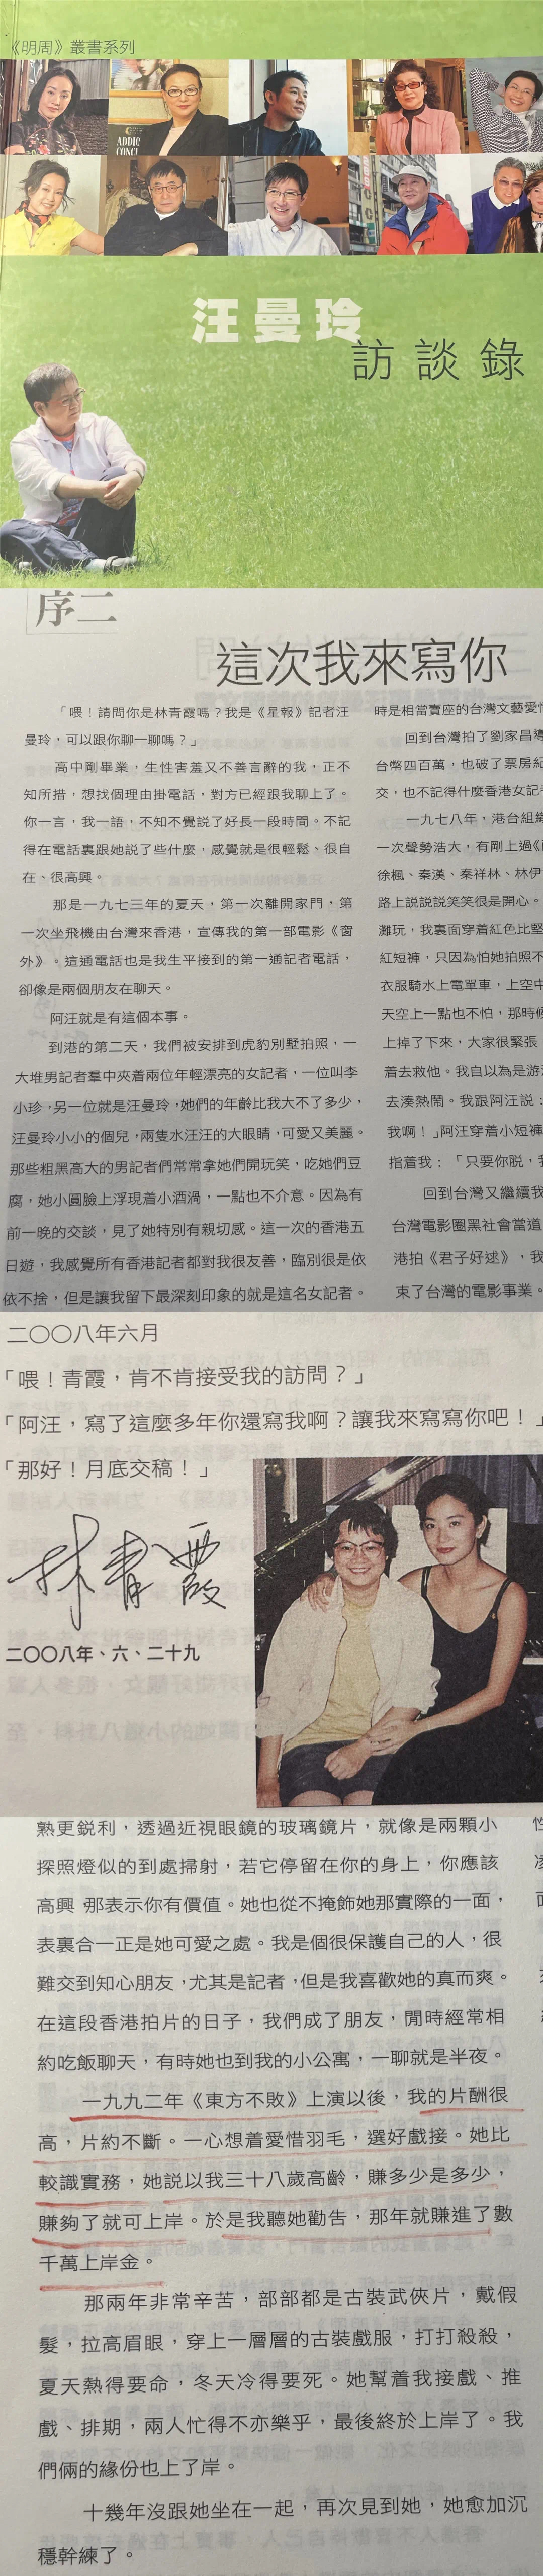 《明周》叢書系列
ADDIE
CONCE
汪曼玲
訪談錄
序二
這次我來寫你
「喂！請問你是林青霞嗎？我是《星報》記者汪
曼玲，可以跟你聊一聊嗎？」
高中剛畢業，生性害羞又不善言辭的我，正不
知所措，想找個理由掛電話，對方已經跟我聊上了。
你一言，我一語，不知不覺說了好長一段時間。不記
得在電話裏跟她說了些什麼，感覺就是很輕鬆、很自
在、很高興。
那是一九七三年的夏天，第一次離開家門，第
一次坐飛機由台灣來香港，宣傳我的第一部電影《窗
外》。這通電話也是我生平接到的第一通記者電話，
卻像是兩個朋友在聊天。
阿汪就是有這個本事。
到港的第二天，我們被安排到虎豹別墅拍照，一
大堆男記者羣中夾着兩位年輕漂亮的女記者，一位叫李
小珍，另一位就是汪曼玲，她們的年齡比我大不了多少，
汪曼玲小小的個兒，兩隻水汪汪的大眼睛，可愛又美麗。
那些粗黑高大的男記者們常常拿她們開玩笑，吃她們豆
腐，她小圓臉上浮現着小酒渦，一點也不介意。因為有
前一晚的交談，見了她特別有親切感。這一次的香港五
日遊，我感覺所有香港記者都對我很友善，臨別很是依
依不捨，但是讓我留下最深刻印象的就是這名女記者。
時是相當賣座的台灣文藝愛情
回到台灣拍了劉家昌導
台幣四百萬，也破了票房紀
交，也不記得什麼香港女記者
一九七八年，港台組織
一次聲勢浩大，有剛上過《
徐楓、秦漢、秦祥林、林伊
路上説説説笑笑很是開心。
灘玩，我裏面穿着紅色比堅
紅短褲，只因為怕她拍照不
衣服騎水上電單車，上空中
天空上一點也不怕，那時候
上掉了下來，大家很緊張
着去救他。我自以為是游
去湊熱鬧。我跟阿汪説：
我啊！」阿汪穿着小短褲
指着我：「只要你脱，我
回到台灣又繼續我
台灣電影圈黑社會當道
港拍《君子好逑》，我
束了台灣的電影事業。
二〇〇八年六月
「喂！青霞，肯不肯接受我的訪問？」
「阿汪，寫了這麼多年你還寫我啊？讓我來寫寫你吧！」
「那好！月底交稿！」
林青霞
二〇〇八年、六、二十九
熟更鋭利，透過近視眼鏡的玻璃鏡片，就像是兩顆小
探照燈似的到處掃射，若它停留在你的身上，你應該
高興，那表示你有價值。她也從不掩飾她那實際的一面，
表裏合一正是她可愛之處。我是個很保護自己的人，很
難交到知心朋友，尤其是記者，但是我喜歡她的真而爽。
在這段香港拍片的日子，我們成了朋友，閒時經常相
約吃飯聊天，有時她也到我的小公寓，一聊就是半夜。
一九九二年《東方不敗》上演以後，我的片酬很
高，片約不斷。一心想着愛惜羽毛，選好戲接。她比
較識實務，她説以我三十八歲高齡，賺多少是多少，
賺夠了就可上岸。於是我聽她勸告，那年就賺進了數
千萬上岸金。
那兩年非常辛苦，部部都是古裝武俠片，戴假
髮，拉高眉眼，穿上一層層的古裝戲服，打打殺殺，
夏天熱得要命，冬天冷得要死。她幫着我接戲、推
戲、排期，兩人忙得不亦樂乎，最後終於上岸了。我
們倆的緣份也上了岸。
十幾年沒跟她坐在一起，再次見到她，她愈加沉
穩幹練了。